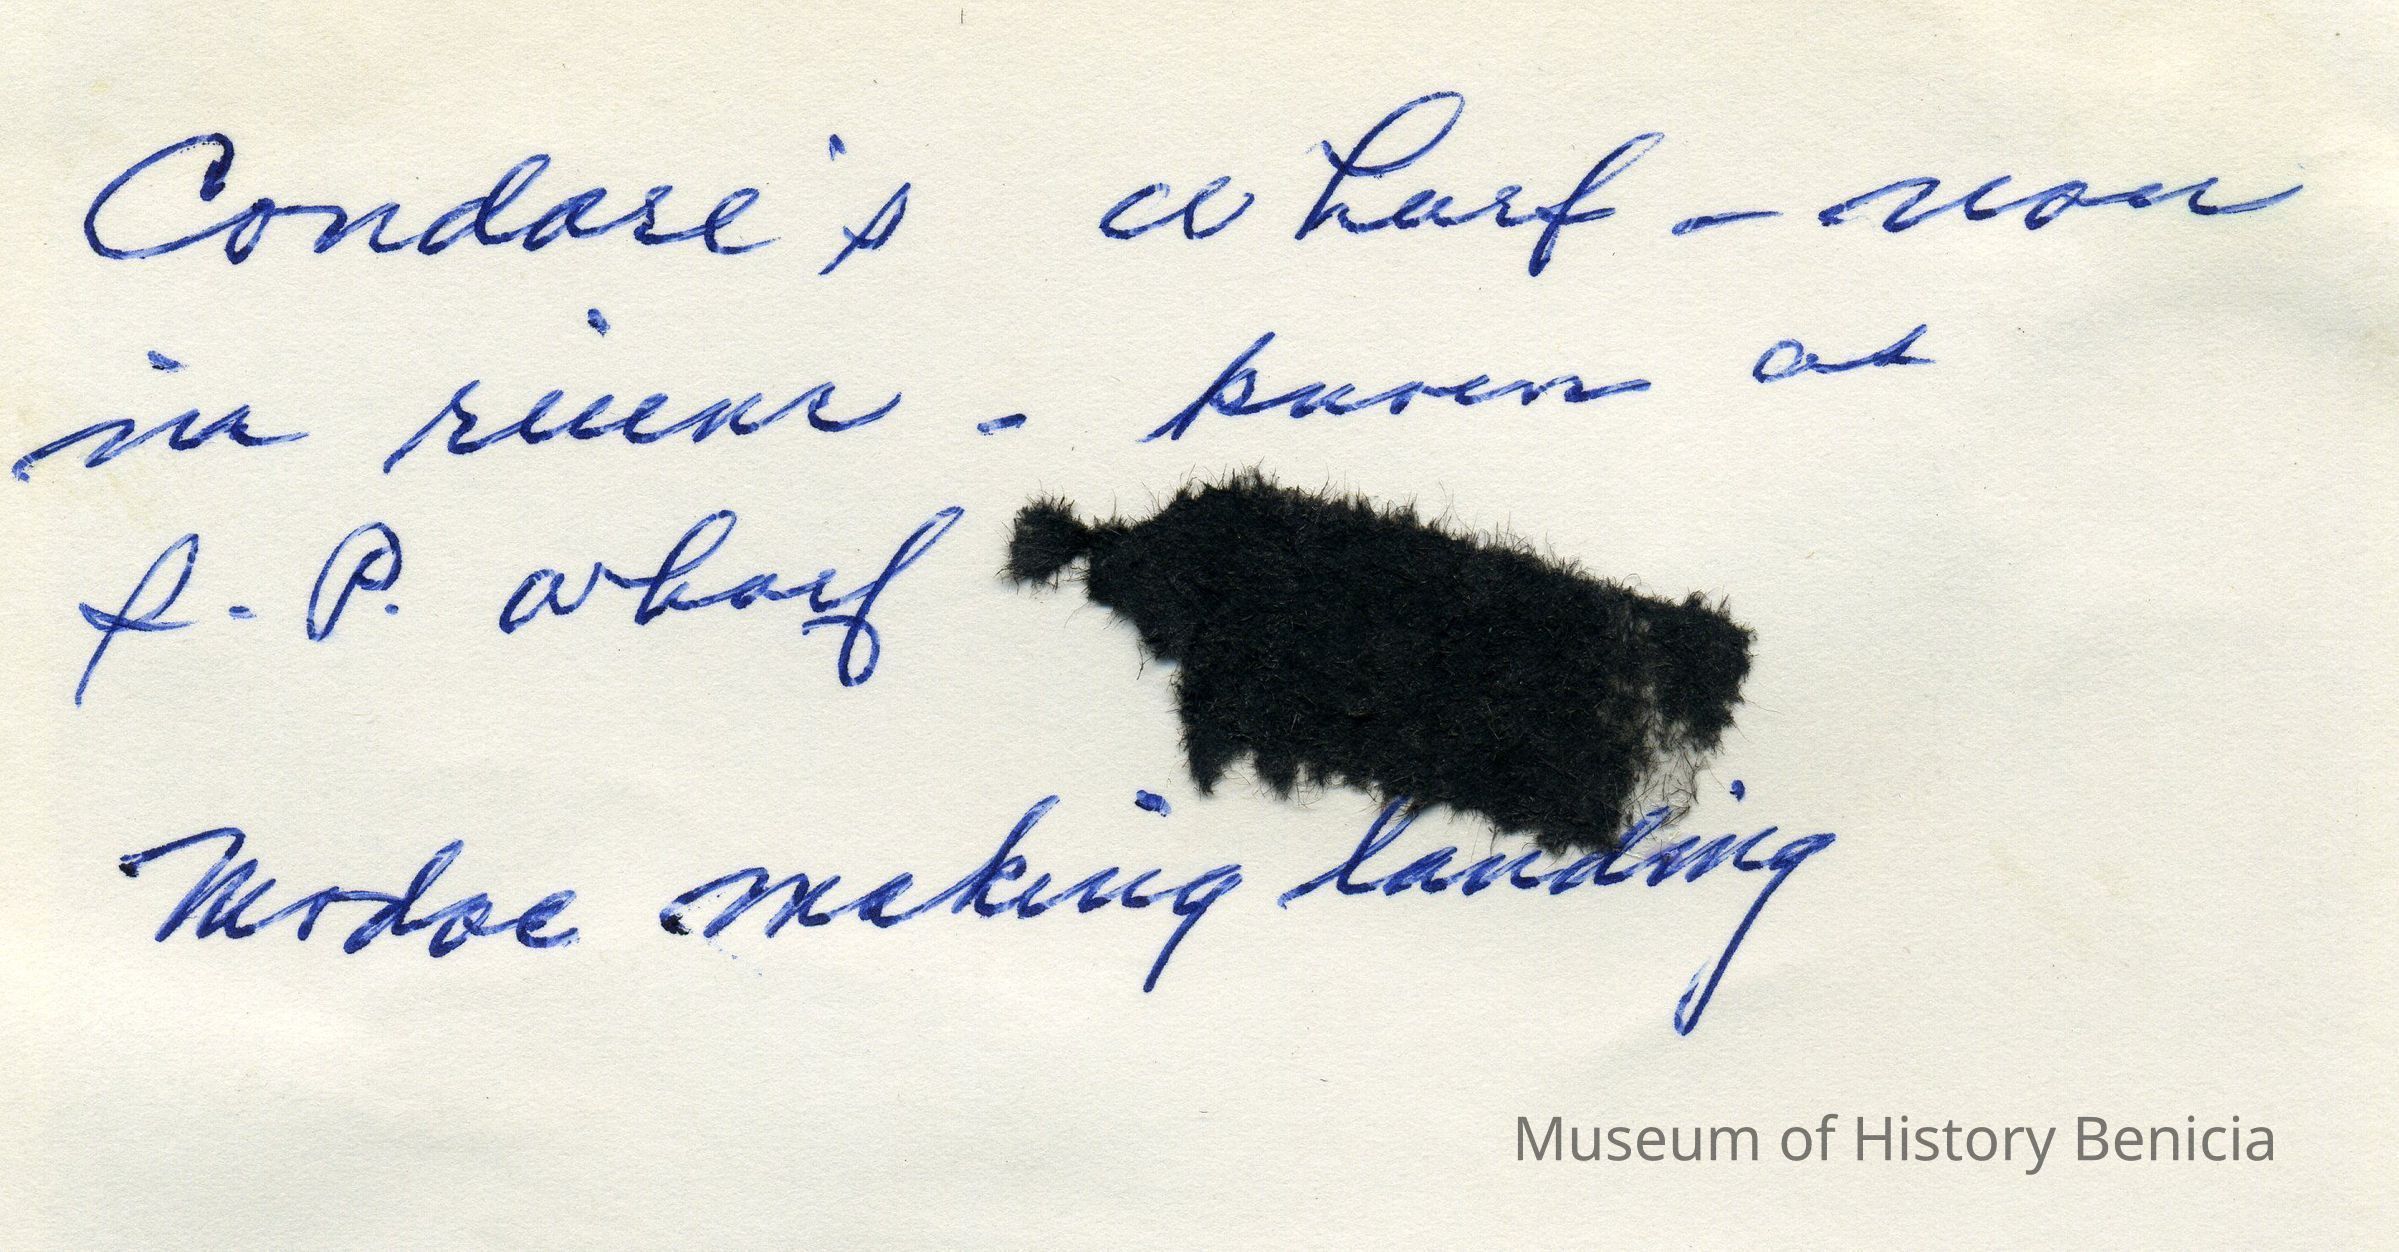 Condare's wharf - now
in ruins - known as
S. P. wharf
Modoc making landing
Museum of History Benicia